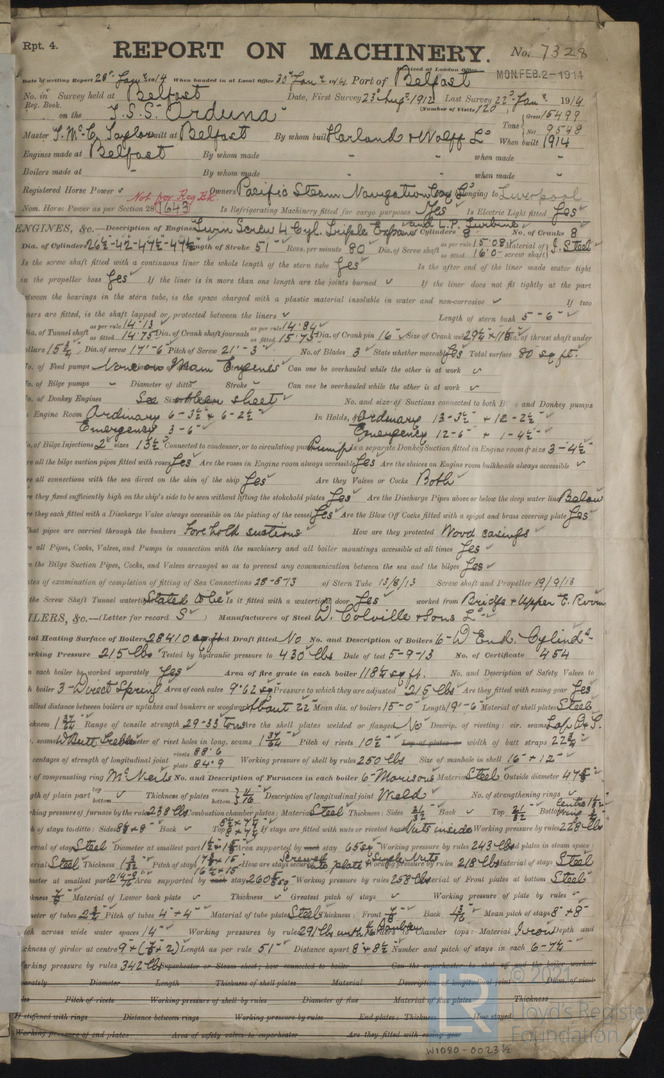 Rpt. 4.
REPORT ON MACHINERY.
No. 7328
Received at London Office
MON. FEB. 2 - 1914
Date of writing Report 28th Jany 1914 When handed in at Local Office 30th Jany 1914 Port of Belfast
No. in Survey held at Belfast Date, First Survey 23rd Augt 1912 Last Survey 22nd Jany 1914
Reg. Book. (Number of Visits 120
on the T.S.S. "Orduna" Tons Gross 15499 Net 9548
Master T. McC. Taylor Built at Belfast By whom built Harland & Wolff Ld When built 1914
Engines made at Belfast By whom made " " when made "
Boilers made at " By whom made " " when made "
Registered Horse Power Owners Pacific Steam Navigation Coy Ld belonging to Liverpool
Not for Reg. Bk.
Nom. Horse Power as per Section 28 1643 Is Refrigerating Machinery fitted for cargo purposes Yes Is Electric Light fitted Yes
ENGINES, &c.—Description of Engines Twin Screw 4 Cyl. Triple Expan and L.P. Turbine No. of Cylinders 8 No. of Cranks 8
Dia. of Cylinders Length of Stroke 51" Revs. per minute 80 Dia. of Screw shaft as per rule 15.08 as fitted 16.0 Material of screw shaft I. Steel
Is the screw shaft fitted with a continuous liner the whole length of the stern tube Yes Is the after end of the liner made water tight
in the propeller boss Yes If the liner is in more than one length are the joints burned If the liner does not fit tightly at the part
between the bearings in the stern tube, is the space charged with a plastic material insoluble in water and non-corrosive If two
liners are fitted, is the shaft lapped or protected between the liners Length of stern bush 5-6"
Dia. of Tunnel shaft as per rule 14.13 as fitted 14.75 Dia. of Crank shaft journals as per rule 14.84 as fitted 15.75 Dia. of Crank pin 16" Size of Crank webs Dia. of thrust shaft under
collars 15¾" Dia. of screw 17'-6" Pitch of Screw 21'-3" No. of Blades 3 State whether moveable Yes Total surface 80 sq ft.
No. of Feed pumps None on Main Engines Can one be overhauled while the other is at work
No. of Bilge pumps Diameter of ditto Stroke Can one be overhauled while the other is at work
No. of Donkey Engines See other sheet No. and size of Suctions connected to both Bilge and Donkey pumps
In Engine Room Ordinary 6-3½" + 6-2½" In Holds, &c. Ordinary 13-3½" + 12-2½"
Emergency 3-6" Emergency 12-6" + 1-4½"
No. of Bilge Injections 2 sizes 13½" Connected to condenser, or to circulating pump Pump Is a separate Donkey Suction fitted in Engine room & size 3-4½"
Are all the bilge suction pipes fitted with roses Yes Are the roses in Engine room always accessible Yes Are the sluices on Engine room bulkheads always accessible
Are all connections with the sea direct on the skin of the ship Yes Are they Valves or Cocks Both
Are they fixed sufficiently high on the ship's side to be seen without lifting the stokehold plates Yes Are the Discharge Pipes above or below the deep water line Below
Are they each fitted with a Discharge Valve always accessible on the plating of the vessel Yes Are the Blow Off Cocks fitted with a spigot and brass covering plate Yes
What pipes are carried through the bunkers Fore hold suctions How are they protected Wood casings
Are all Pipes, Cocks, Valves, and Pumps in connection with the machinery and all boiler mountings accessible at all times Yes
Are the Bilge Suction Pipes, Cocks, and Valves arranged so as to prevent any communication between the sea and the bilges Yes
Dates of examination of completion of fitting of Sea Connections 28-8-13 of Stern Tube 13/8/13 Screw shaft and Propeller 19/9/13
Is the Screw Shaft Tunnel watertight Stated to be Is it fitted with a watertight door Yes worked from Bridge & Upper E. Room
BOILERS, &c.—(Letter for record S) Manufacturers of Steel D. Colville & Sons Ld
Total Heating Surface of Boilers 28410 sq ft Is Forced Draft fitted No No. and Description of Boilers 6-D. End. Cylindl
Working Pressure 215 lbs Tested by hydraulic pressure to 430 lbs Date of test 5-9-13 No. of Certificate 454
Can each boiler be worked separately Yes Area of fire grate in each boiler 118½ sq ft. No. and Description of Safety Valves to
each boiler 3-Direct Spring Area of each valve 9.62 sq" Pressure to which they are adjusted 215 lbs Are they fitted with easing gear Yes
Smallest distance between boilers or uptakes and bunkers or woodwork About 22" Mean dia. of boilers 15'-0" Length 19'-6" Material of shell plates Steel
Thickness Range of tensile strength 29-33 tons Are the shell plates welded or flanged No Descrip. of riveting: cir. seams Lap
long. seams D. Butt Treble Diameter of rivet holes in long. seams Pitch of rivets 10½" width of butt straps
Percentages of strength of longitudinal joint rivets 88.6 plate 84.9 Working pressure of shell by rules 250 lbs Size of manhole in shell 16" × 12"
Size of compensating ring McNeils No. and Description of Furnaces in each boiler 6-Morisons Material Steel Outside diameter
Length of plain part top bottom Thickness of plates crown bottom Description of longitudinal joint Weld No. of strengthening rings
Working pressure of furnace by the rules 238 lbs Combustion chamber plates: Material Steel Thickness: Sides 21/32" Back Top 21/32" Bottom
Pitch of stays to ditto: Sides 8⅛ × 8" Back Top If stays are fitted with nuts or riveted heads Nuts inside Working pressure by rules 228 lbs
Material of stays Steel Diameter at smallest part Area supported by each stay 65 sq" Working pressure by rules 243 lbs End plates in steam space:
Material Steel Thickness Pitch of stays How are stays secured Screwed into plate & Single Nuts Working pressure by rules 218 lbs Material of stays Steel
Diameter at smallest part Area supported by each stay Working pressure by rules 258 lbs Material of Front plates at bottom Steel
Thickness Material of Lower back plate Thickness Greatest pitch of stays Working pressure of plate by rules
Diameter of tubes 2½" Pitch of tubes 4" × 4" Material of tube plates Steel Thickness: Front Back Mean pitch of stays 8" × 8"
Pitch across wide water spaces 14" Working pressures by rules 291 lbs Girders to Chamber tops: Material Iron Depth and
thickness of girder at centre 9 × (⅞ × 2) Length as per rule 51" Distance apart 8 & 8½" Number and pitch of stays in each 6-7½"
Working pressure by rules 342 lbs Superheater or Steam chest; how connected to boiler Can the superheater be shut off and the boiler worked
separately Diameter Length Thickness of shell plates Material Description of longitudinal joint Diam. of rivet
holes Pitch of rivets Working pressure of shell by rules Diameter of flue Material of flue plates Thickness
If stiffened with rings Distance between rings Working pressure by rules End plates: Thickness How stayed
Working pressure of end plates Area of safety valves to superheater Are they fitted with easing gear
© 2021
Lloyd's Register
Foundation
LR
W1090-0023½